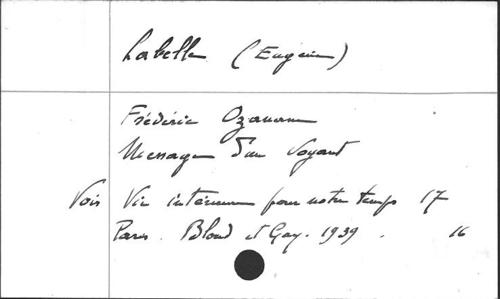 Labelle (Eugénie)
Frédéric Ozanam
Message d'un Voyant
Vois Vie intérieure pour notre temps 17
Paris. Bloud et Gay. 1939. 16